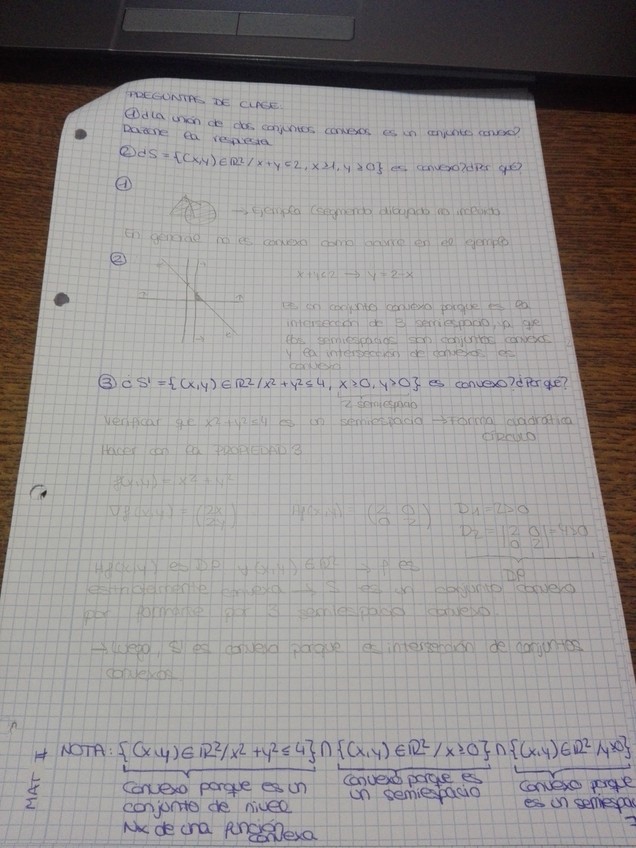 PREGUNTAS DE CLASE.
① ¿La unión de dos conjuntos convexos es un conjunto convexo?
Razone la respuesta
② ¿S = {(x,y) ∈ ℝ² / x+y ≤ 2, x ≥ 1, y ≥ 0} es convexo? ¿Por qué?
①
→ Ejemplo (segmento dibujado no
En general no es convexo como ocurre en el ejemplo
②
x+y=2 → y = 2-x
Es un conjunto convexo porque es la
intersección de 3 semiespacio, ya que
los semiespacios son conjuntos convexos
y la intersección de convexos es
convexo
③ ¿S' = {(x,y) ∈ ℝ² / x²+y² ≤ 4, x ≥ 0, y ≥ 0} es convexo? ¿Por qué?
2 semiespacio
Verificar que x²+y² ≤ 4 es un semiespacio → Forma cuadrática
círculo
Hacer con la PROPIEDAD 3
f(x,y) = x² + y²
∇f(x,y) = (2x 2y) Hf(x,y) = (2 0 0 2) D₁ = 2 > 0
D₂ = |2 0 0 2| = 4 > 0
DP
Hf(x,y) es DP ∀(x,y) ∈ ℝ² → f es
estrictamente convexa → S es un conjunto convexo
por formarse por 3 semiespacio convexo.
→ Luego, S' es convexo porque es intersección de conjuntos
convexos.
MAT I
NOTA: {(x,y) ∈ ℝ² / x² + y² ≤ 4} ∩ {(x,y) ∈ ℝ² / x ≥ 0} ∩ {(x,y) ∈ ℝ² / y ≥ 0}
Convexo porque es un
conjunto de nivel
de una función
convexa
Convexo porque es
un semiespacio
Convexo porque
es un semiespac